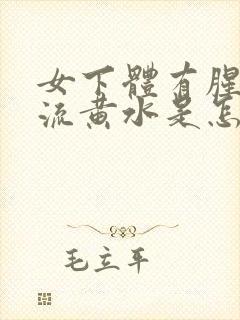 女下體有腥
流黄水是怎
毛立平